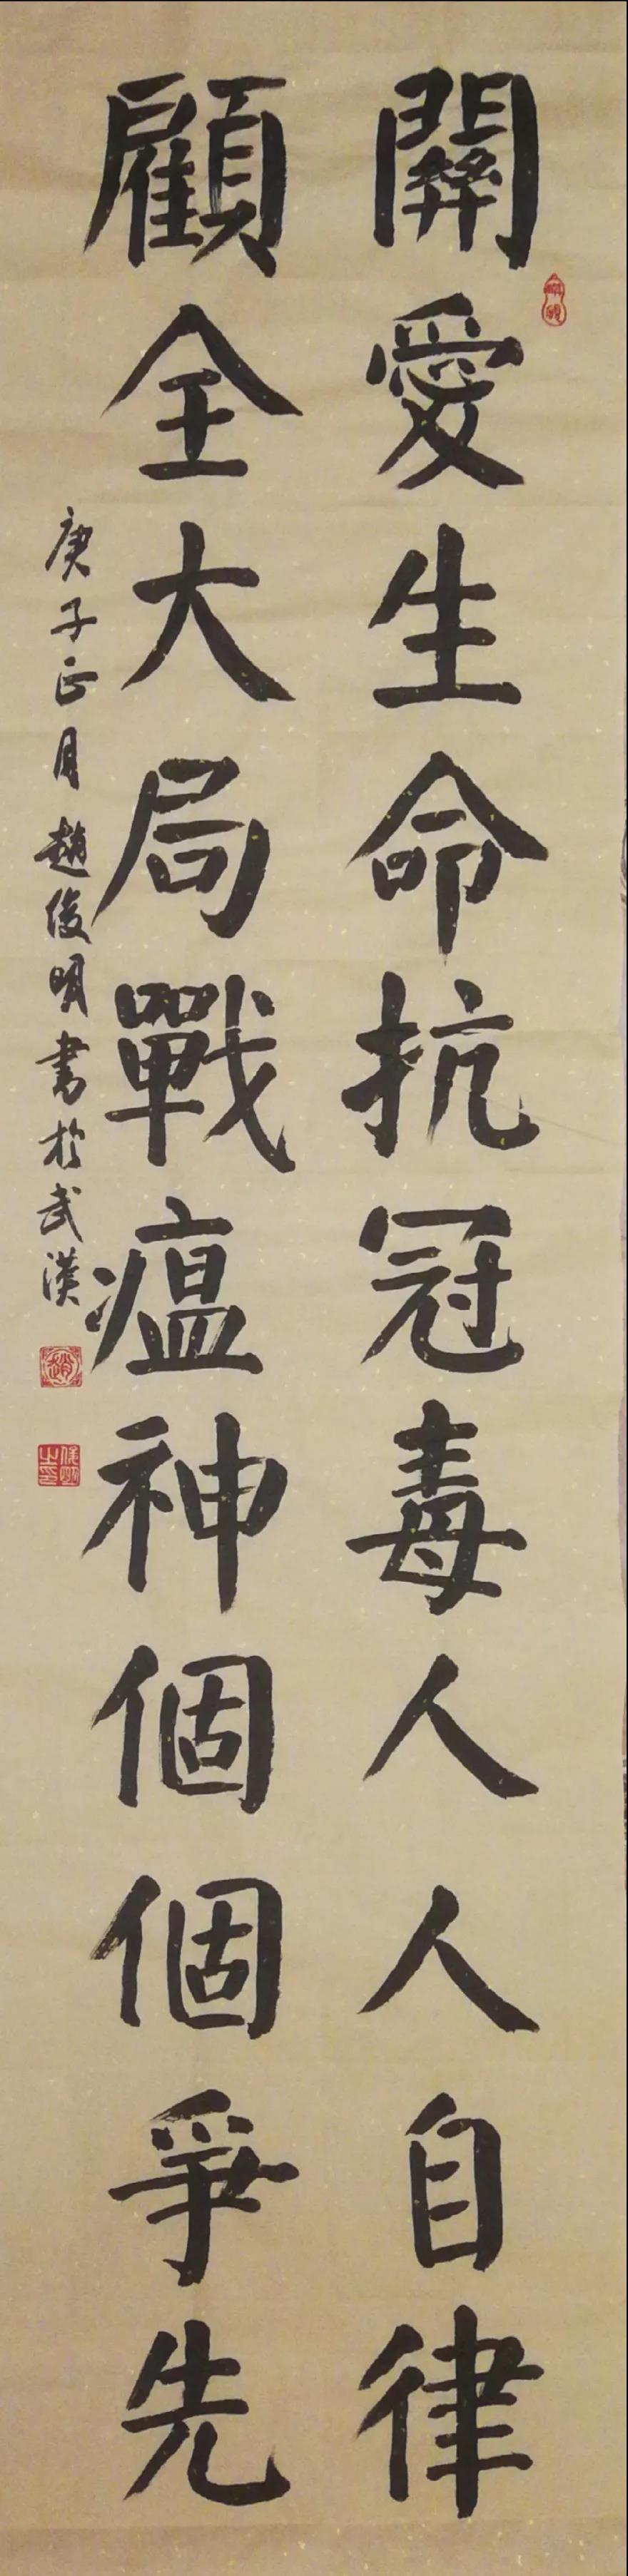 關愛生命抗冠毒人人自律
顧全大局戰瘟神個個爭先
庚子正月趙俊明書於武漢